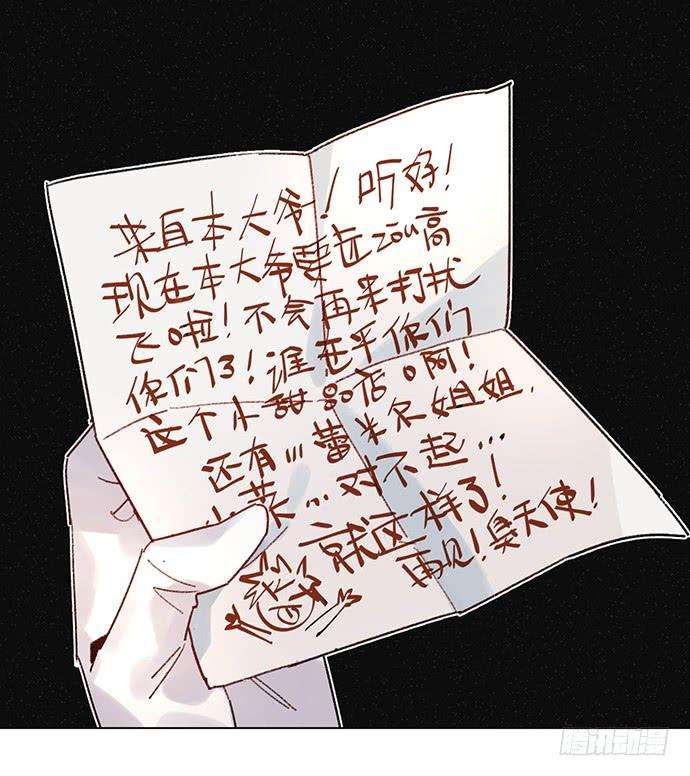 来自本大爷！听好！
现在本大爷要远zou高
飞啦！不会再来打扰
你们了！谁在乎你们
这个小甜品店啊！
还有…蕾米尔姐姐.
小莱…对不起…
就这样了！
再见！臭天使！
腾讯动漫